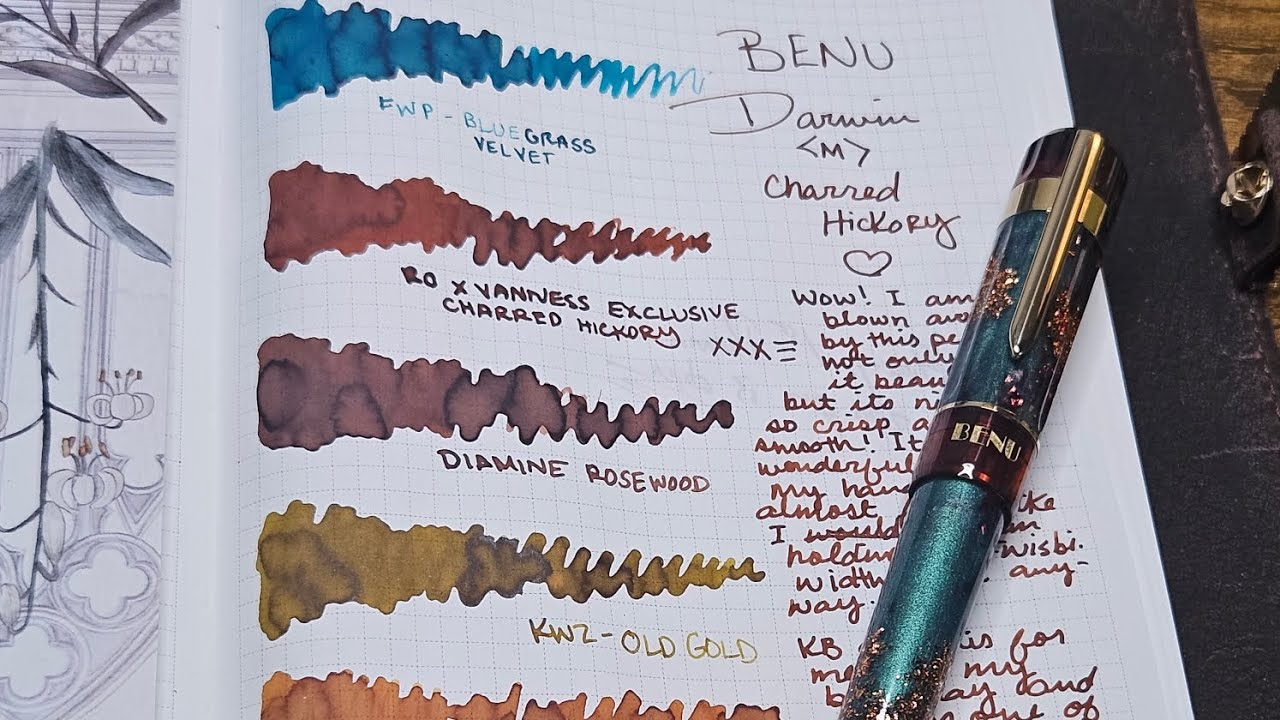 FWP - BLUEGRASS
VELVET
RO X VANNESS EXCLUSIVE
CHARRED HICKORY
DIAMINE ROSEWOOD
KWZ - OLD GOLD
BENU
Darwin
<M>
Charred
Hickory
XXX
Wow! I am
blown
by this
not only
it
but its
so crisp
smooth! It
wonderful
my
almost
I would
width any-
way.
KB is for
my
and
out of
BENU